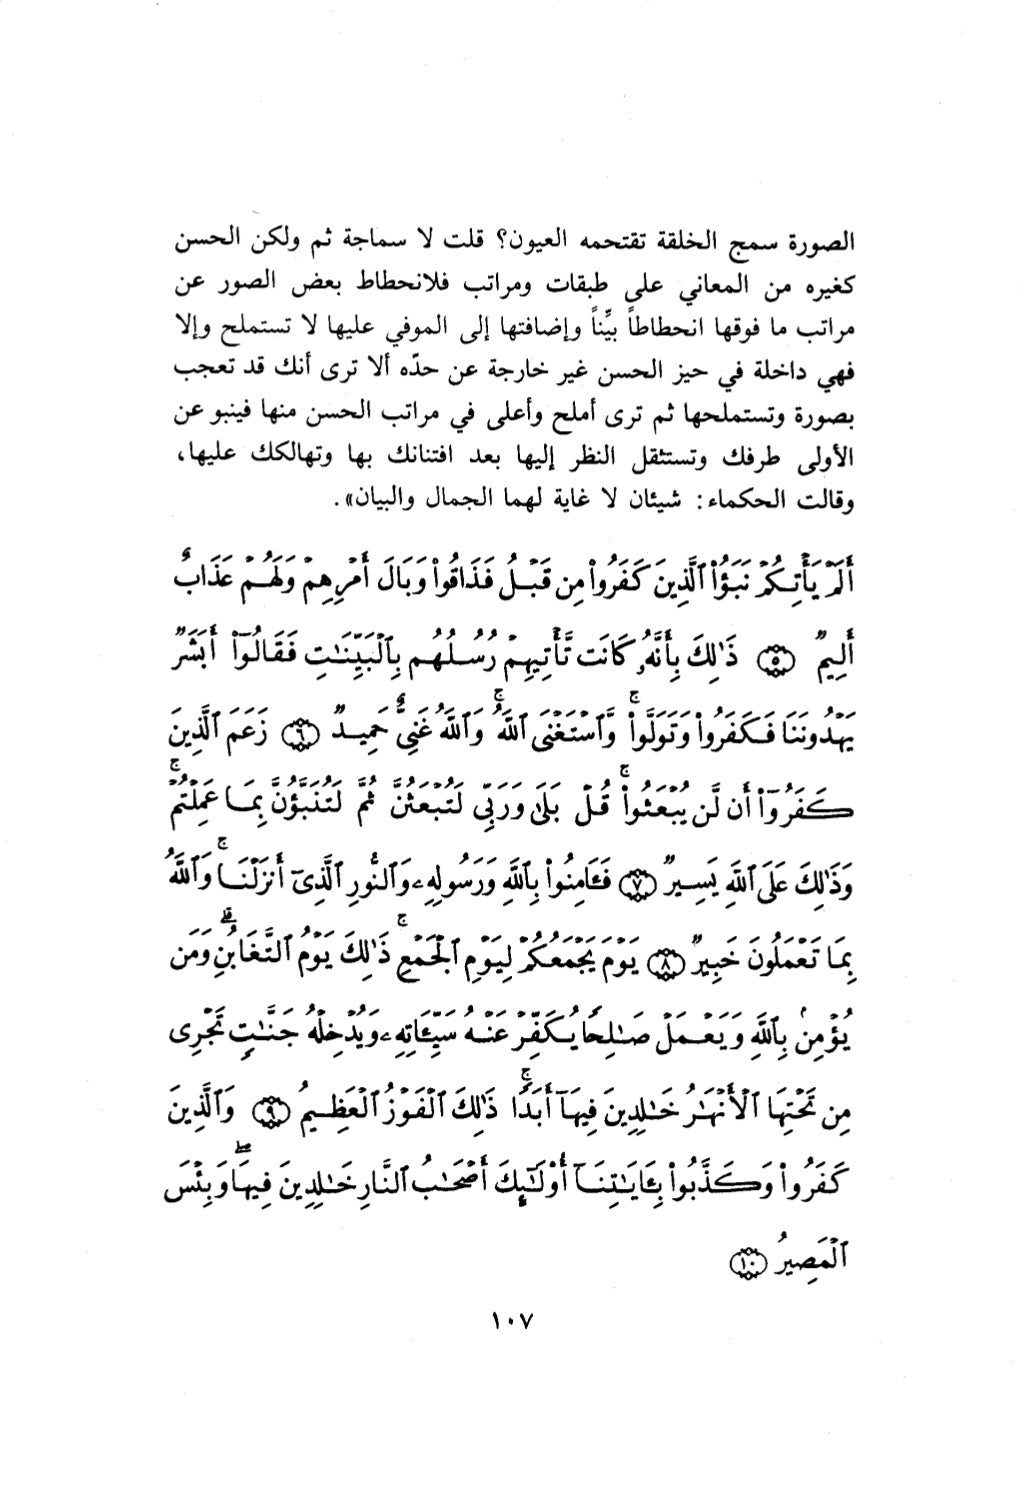 الصورة سمج الخلقة تقتحمه العيون؟ قلت لا سماجة ثم ولكن الحسن
كغيره من المعاني على طبقات ومراتب فلانحطاط بعض الصور عن
مراتب ما فوقها انحطاطاً بيِّناً وإضافتها إلى الموفي عليها لا تستملح وإلا
فهي داخلة في حيز الحسن غير خارجة عن حدّه ألا ترى أنك قد تعجب
بصورة وتستملحها ثم ترى أملح وأعلى في مراتب الحسن منها فينبو عن
الأولى طرفك وتستثقل النظر إليها بعد افتنانك بها وتهالكك عليها،
وقالت الحكماء: شيئان لا غاية لهما الجمال والبيان».
أَلَمْ يَأْتِكُمْ نَبَؤُا۟ ٱلَّذِينَ كَفَرُوا۟ مِن قَبْلُ فَذَاقُوا۟ وَبَالَ أَمْرِهِمْ وَلَهُمْ عَذَابٌ
أَلِيمٌ ﴿٥﴾ ذَٰلِكَ بِأَنَّهُۥ كَانَت تَّأْتِيهِمْ رُسُلُهُم بِٱلْبَيِّنَـٰتِ فَقَالُوٓا۟ أَبَشَرٌ
يَهْدُونَنَا فَكَفَرُوا۟ وَتَوَلَّوا۟ ۚ وَّٱسْتَغْنَى ٱللَّهُ ۚ وَٱللَّهُ غَنِىٌّ حَمِيدٌ ﴿٦﴾ زَعَمَ ٱلَّذِينَ
كَفَرُوٓا۟ أَن لَّن يُبْعَثُوا۟ ۚ قُلْ بَلَىٰ وَرَبِّى لَتُبْعَثُنَّ ثُمَّ لَتُنَبَّؤُنَّ بِمَا عَمِلْتُمْ ۚ
وَذَٰلِكَ عَلَى ٱللَّهِ يَسِيرٌ ﴿٧﴾ فَـَٔامِنُوا۟ بِٱللَّهِ وَرَسُولِهِۦ وَٱلنُّورِ ٱلَّذِىٓ أَنزَلْنَا ۚ وَٱللَّهُ
بِمَا تَعْمَلُونَ خَبِيرٌ ﴿٨﴾ يَوْمَ يَجْمَعُكُمْ لِيَوْمِ ٱلْجَمْعِ ۖ ذَٰلِكَ يَوْمُ ٱلتَّغَابُنِ ۗ وَمَن
يُؤْمِنۢ بِٱللَّهِ وَيَعْمَلْ صَـٰلِحًا يُكَفِّرْ عَنْهُ سَيِّـَٔاتِهِۦ وَيُدْخِلْهُ جَنَّـٰتٍ تَجْرِى
مِن تَحْتِهَا ٱلْأَنْهَـٰرُ خَـٰلِدِينَ فِيهَآ أَبَدًا ۚ ذَٰلِكَ ٱلْفَوْزُ ٱلْعَظِيمُ ﴿٩﴾ وَٱلَّذِينَ
كَفَرُوا۟ وَكَذَّبُوا۟ بِـَٔايَـٰتِنَآ أُو۟لَـٰٓئِكَ أَصْحَـٰبُ ٱلنَّارِ خَـٰلِدِينَ فِيهَا ۖ وَبِئْسَ
ٱلْمَصِيرُ ﴿١٠﴾
١٠٧